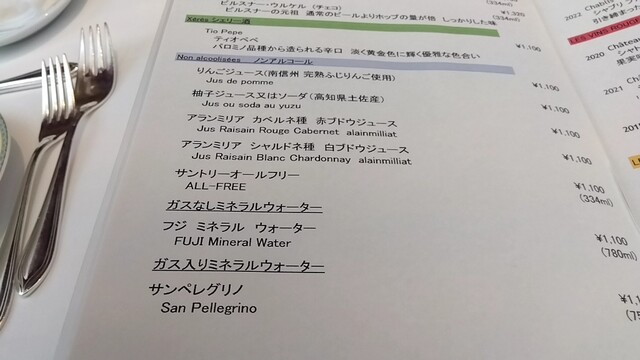 ピルスナー・ウルケル (チェコ)
(334ml)
ピルスナーの元祖 通常のビールよりホップの量が倍 しっかりした味
¥1,320
(334ml)
Xérès シェリー酒
Tio Pepe
ティオペペ
¥1,100
パロミノ品種から造られる辛口 淡く黄金色に輝く優雅な色合い
Non alcoolisées ノンアルコール
りんごジュース(南信州 完熟ふじりんご使用)
¥1,100
Jus de pomme
柚子ジュース又はソーダ (高知県土佐産)
¥1,100
Jus ou soda au yuzu
アランミリア カベルネ種 赤ブドウジュース
¥1,100
Jus Raisain Rouge Cabernet alainmilliat
アランミリア シャルドネ種 白ブドウジュース
¥1,100
Jus Raisain Blanc Chardonnay alainmilliat
サントリーオールフリー
¥1,100
ALL-FREE
(334ml)
ガスなしミネラルウォーター
フジ ミネラル ウォーター
¥1,100
FUJI Mineral Water
(780ml)
ガス入りミネラルウォーター
サンペレグリノ
San Pellegrino
2022
Chablis
シャブリ
引き締まった
LES VINS ROUG
2020
Château
シャ
果実味
2021
Ch
2020